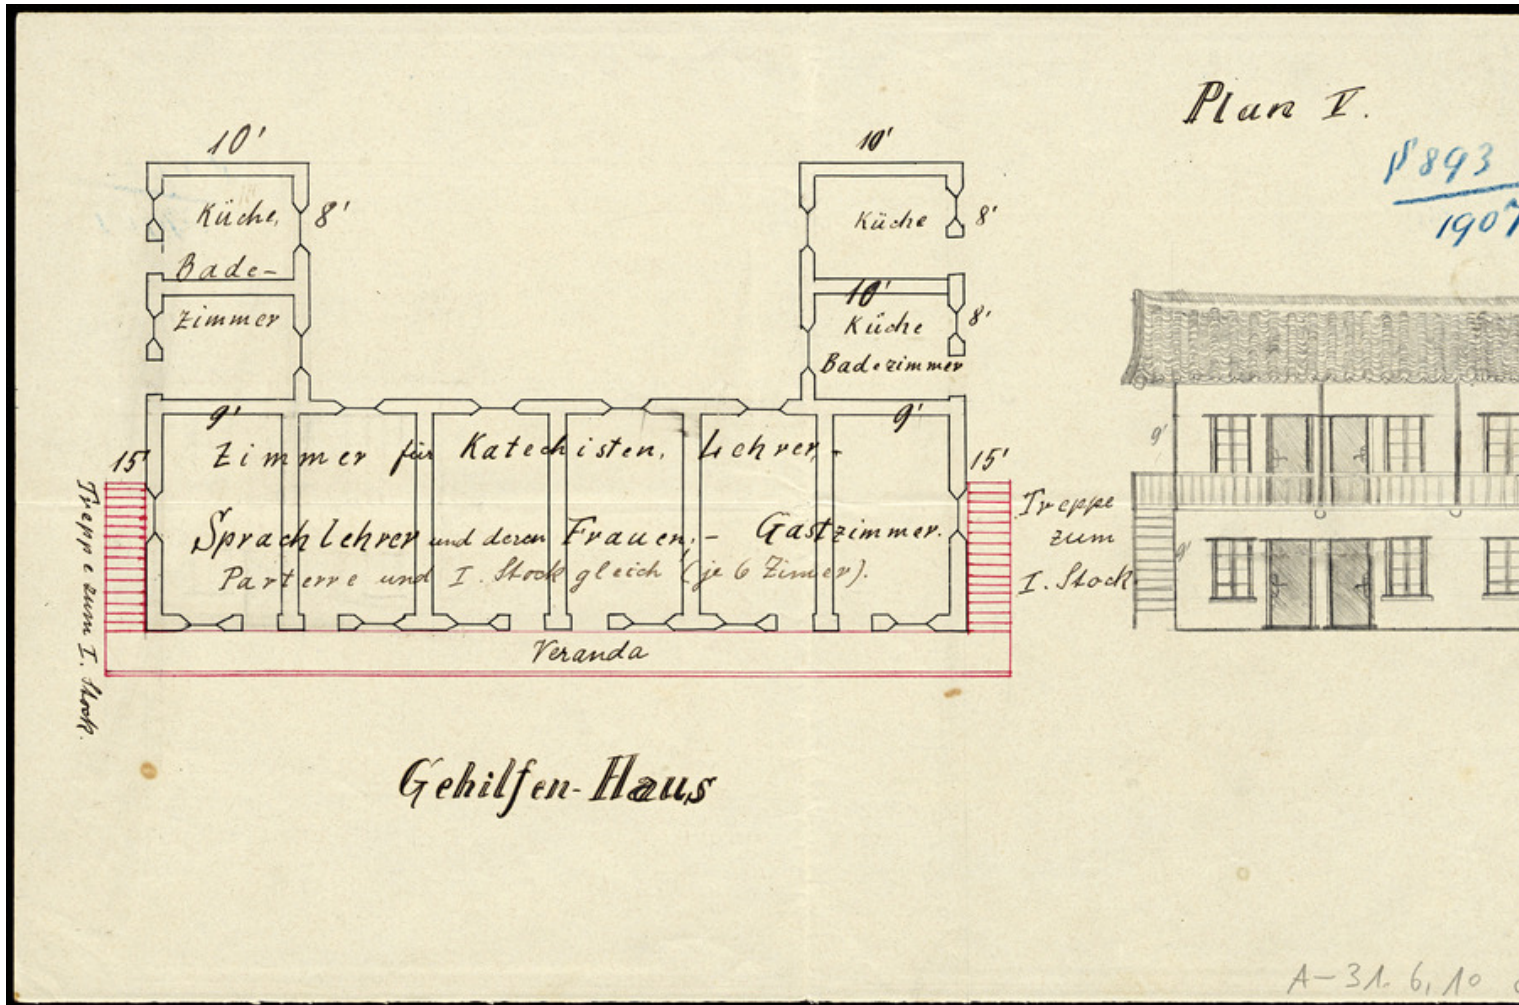 Plan V.
§ 893
1907
10'
10'
Küche,
8'
Küche
8'
Bade-
zimmer
10'
Küche
8'
Badezimmer
9'
9'
Zimmer für Katechisten, Lehrer,-
15'
15'
Sprachlehrer und deren Frauen,- Gastzimmer.
Parterre und I. Stock gleich (je 6 Zimer).
Veranda
Treppe zum I. Stock.
Treppe
zum
I. Stock
9'
9'
Gehilfen-Haus
A-31. 6, 10